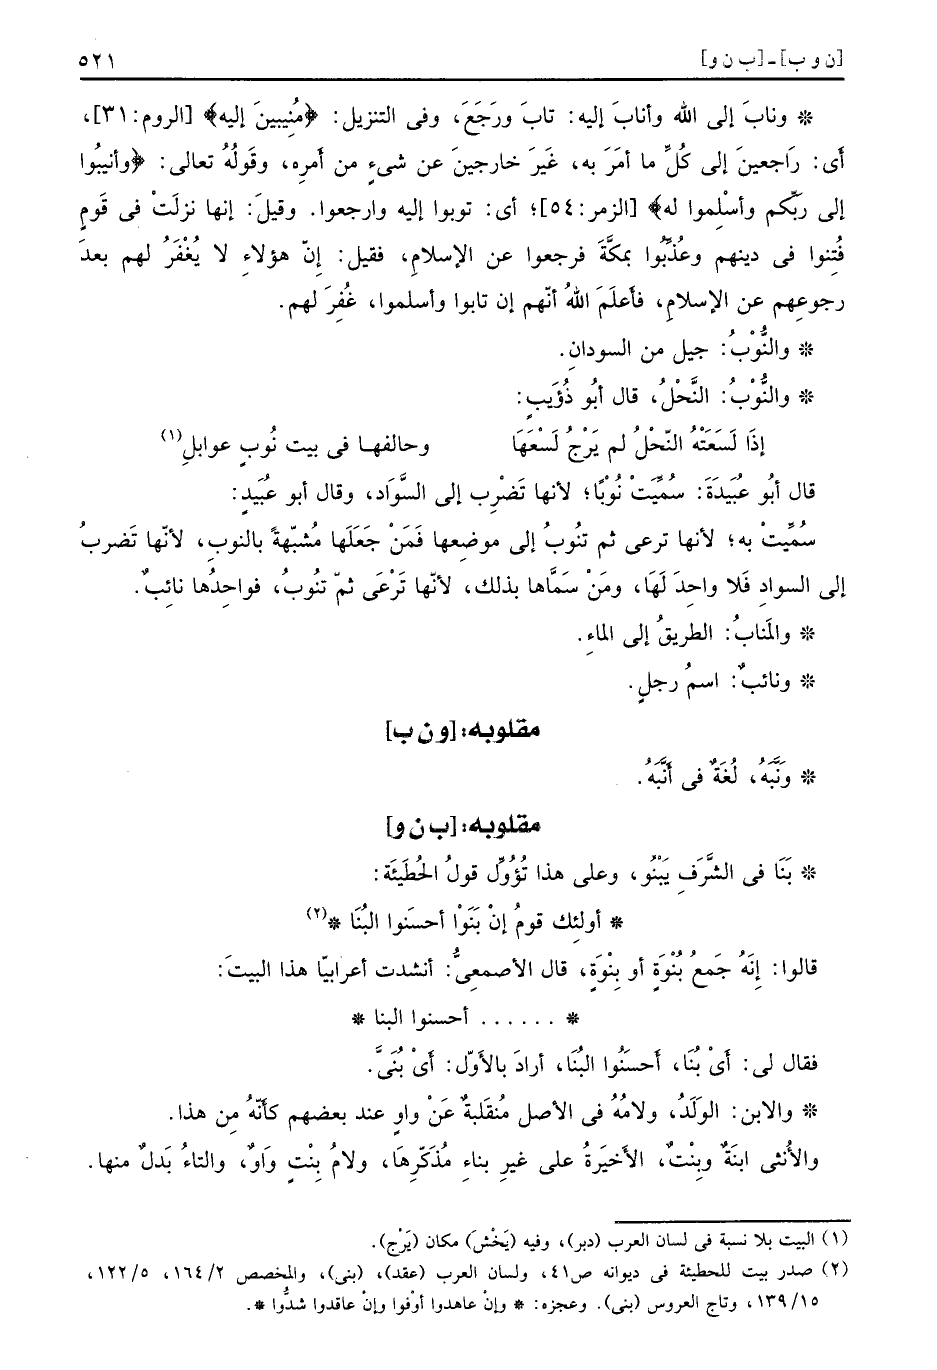 [ن و ب] - [ب ن و] ٥٢١
* ونابَ إلى الله وأنابَ إليه: تابَ ورَجَعَ، وفى التنزيل: ﴿مُنِيبينَ إليه﴾ [الروم:٣١]،
أى: رَاجعينَ إلى كُلِّ ما أمَرَ به، غَيرَ خارجينَ عن شىءٍ من أمرِه، وقَولُهُ تعالى: ﴿وأنيبُوا
إلى ربِّكم وأسْلِموا له﴾ [الزمر:٥٤]؛ أى: توبوا إليه وارجعوا. وقيلَ: إنها نزلَتْ فى قَومٍ
فُتِنوا فى دينهم وعُذِّبُوا بمكَّةَ فرجعوا عن الإسلامِ، فقيل: إنّ هؤلاءِ لا يُغْفَرُ لهم بعدَ
رجوعِهم عن الإسلامِ، فأعلَمَ اللهُ أنّهم إن تابوا وأسلموا، غُفِرَ لهم.
* والنُّوْبُ: جيل من السودانِ.
* والنُّوْبُ: النَّحْلُ، قال أبُو ذُؤَيبٍ:
إذَا لَسَعَتْهُ النّحْلُ لم يَرْجُ لَسْعَهَا وحالفهـا فى بيت نُوبٍ عوابلِ(١)
قال أبُو عبَيدَةَ: سُمِّيَتْ نُوْبًا؛ لأنها تَضْرِب إلى السَّوَادِ، وقال أبو عبَيد:
سُمِّيتْ به؛ لأنها ترعى ثم تنُوبُ إلى موضعِها فَمَنْ جَعَلَها مُشبّهةً بالنوبِ، لأنّها تَضربُ
إلى السوادِ فَلا واحِدَ لَهَا، ومَنْ سَمَّاها بذلك، لأنّها تَرْعَى ثمّ تنُوبُ، فواحِدُها نائِبٌ.
* والمَنابُ: الطريقُ إلى الماءِ.
* ونائبٌ: اسمُ رجلٍ.
مقلوبه: [و ن ب]
* ونَّبَهُ، لُغَةٌ فى أنَّبَهُ.
مقلوبه: [ب ن و]
* بَنَا فى الشَّرَفِ يَبْنُو، وعلى هذا تُؤُوِّل قولُ الحُطَيْئَة:
* أولئِك قومُ إنْ بَنَوْا أحسَنوا البُنَا *(٢)
قالوا: إنَهُ جَمعُ بُنْوَةٍ أو بِنْوَةٍ، قال الأصمعِىُّ: أنشدت أعرابيّا هذا البيتَ:
* . . . . . . أحسنوا البنا *
فقال لى: أىْ بُنَا، أحسَنُوا البُنَا، أرادَ بالأوّل: أىْ بُنَىَّ.
* والابن: الولَدُ، ولامُهُ فى الأصل مُنقَلبةٌ عَنْ واوٍ عند بعضهم كأنّهُ مِن هذا.
والأُنثى ابنَةٌ وبِنْتٌ، الأخيَرةُ على غيرِ بناءِ مُذَكّرِهَا، ولامُ بِنْتٍ وَاوٌ، والتاءُ بَدلٌ منها.
(١) البيت بلا نسبة فى لسان العرب (دبر)، وفيه (يَخْشَ) مكان (يَرْج).
(٢) صدر بيت للحطيئة فى ديوانه ص٤١، ولسان العرب (عقد)، (بنى)، والمخصص ١٦٤/٢، ١٢٢/٥،
١٣٩/١٥، وتاج العروس (بنى). وعجزه: * وإنْ عاهدوا أوْفوا وإنْ عاقدوا شدُّوا *.